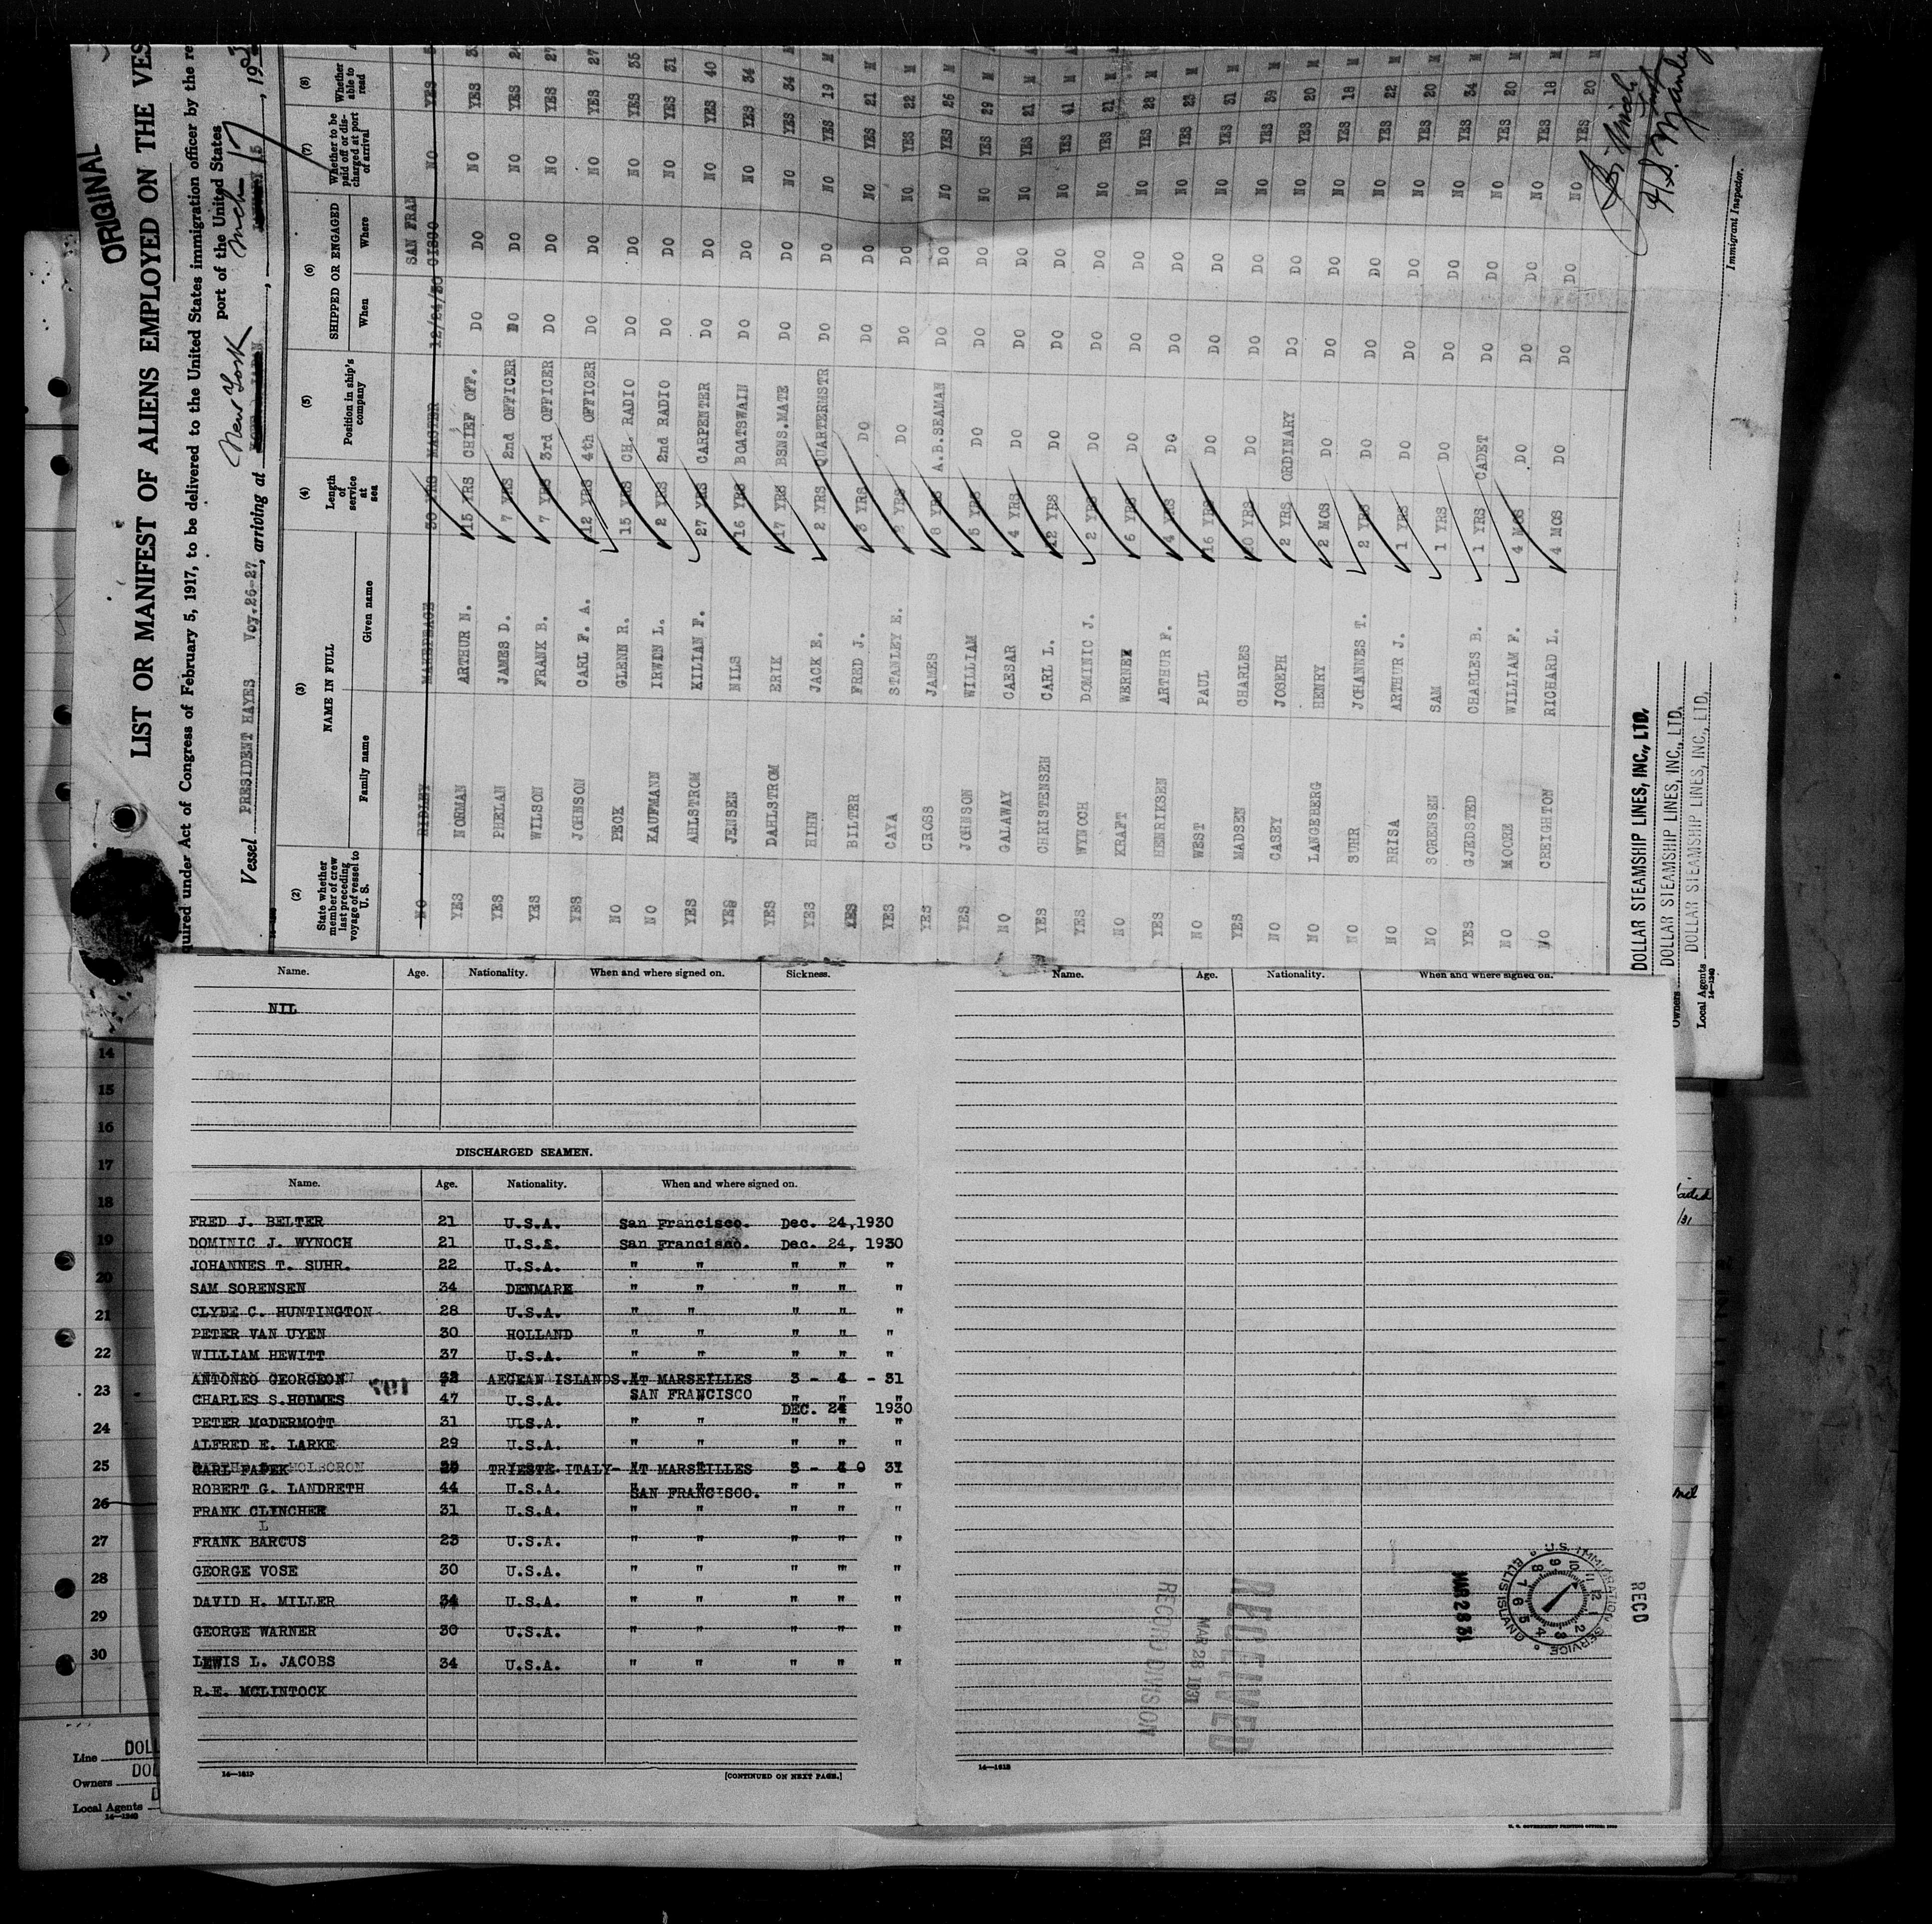 ORIGINAL
LIST OR MANIFEST OF ALIENS EMPLOYED ON THE VES
quired under Act of Congress of February 5, 1917, to be delivered to the United States immigration officer by the re
port of the United States
Vessel PRESIDENT HAYES Voy.26-27, arriving at New York, 193
(2) (3) (4) (5) (6) (7) (8)
State whether member of crew last preceding voyage of vessel to U. S. NAME IN FULL Length of service at sea Position in ship's company SHIPPED OR ENGAGED Whether to be paid off or discharged at port of arrival Whether able to read
Family name Given name When Where
NO RIDLEY 30 YRS MASTER 12/24/30 SAN FRAN CISCO NO YES
YES NORMAN ARTHUR N. 15 YRS CHIEF OFF. DO DO NO YES
YES PHELAN JAMES D. 7 YRS 2nd OFFICER DO DO NO YES
YES WILSON FRANK B. 7 YRS 3rd OFFICER DO DO NO YES 27
YES JOHNSON CARL F. A. 12 YRS 4th OFFICER DO DO NO YES 27
NO PECK GLENN R. 15 YRS CH. RADIO DO DO NO YES 35
NO KAUFMANN IRWIN L. 2 YRS 2nd RADIO DO DO NO YES 31
YES AHLSTROM KILIAN F. 27 YRS CARPENTER DO DO NO YES 40
YES JENSEN NILS 16 YRS BOATSWAIN DO DO NO YES 34
YES DAHLSTROM ERIK 17 YRS BSNS.MATE DO DO NO YES 34
YES HIHN JACK E. 2 YRS QUARTERMSTR DO DO NO YES 19 M
YES BILTER FRED J. 3 YRS DO DO DO NO YES 21 M
YES CAYA STANLEY E. DO DO DO NO YES 22 M
YES CROSS JAMES 8 YRS A.B.SEAMAN DO DO NO YES 26 M
YES JOHNSON WILLIAM 5 YRS DO DO DO NO YES 29 M
NO GALAWAY CAESAR 4 YRS DO DO DO NO YES 21 M
YES CHRISTENSEN CARL L. 12 YRS DO DO DO NO YES 41 M
YES WYNOCH DOMINIC J. 2 YRS DO DO DO NO YES 21 M
NO KRAFT WERNER 6 YRS DO DO DO NO YES 28 M
YES HENRIKSEN ARTHUR F. 4 YRS DO DO DO NO YES 23 M
NO WEST PAUL 16 YRS DO DO DO NO YES 31 M
YES MADSEN CHARLES 20 YRS DO DO DO NO YES 39 M
NO CASEY JOSEPH 2 YRS ORDINARY DO DO NO YES 20 M
NO LANGEBERG HENRY 2 MOS DO DO DO NO YES 18 M
NO SUHR JOHANNES T. 2 YRS DO DO DO NO YES 22 M
NO BRISA ARTHUR J. 1 YRS DO DO DO NO YES 20 M
NO SORENSEN SAM 1 YRS DO DO DO NO YES 34 M
YES GJEDSTED CHARLES B. 1 YRS CADET DO DO NO YES 20 M
NO MOORE WILLIAM F. 4 MOS DO DO DO NO YES 18 M
NO CREIGHTON RICHARD L. 4 MOS DO DO DO NO YES 20 M
DOLLAR STEAMSHIP LINES, INC., LTD.
Owners DOLLAR STEAMSHIP LINES, INC., LTD.
Local Agents DOLLAR STEAMSHIP LINES, INC., LTD.
14—1240
Immigrant Inspector.
Name. Age. Nationality. When and where signed on. Sickness.
NIL
DISCHARGED SEAMEN.
Name. Age. Nationality. When and where signed on.
FRED J. BELTER 21 U.S.A. San Francisco. Dec. 24,1930
DOMINIC J. WYNOCH 21 U.S.A. San Francisco. Dec. 24, 1930
JOHANNES T. SUHR. 22 U.S.A. " " " " "
SAM SORENSEN 34 DENMARK " " " " "
CLYDE C. HUNTINGTON 28 U.S.A. " " " " "
PETER VAN UYEN 30 HOLLAND " " " " "
WILLIAM HEWITT 37 U.S.A. " " " " "
ANTONEO GEORGEON AEGEAN ISLANDS. AT MARSEILLES 3 - 4 - 31
CHARLES S.HOLMES 47 U.S.A. SAN FRANCISCO DEC. 24 1930
PETER McDERMOTT 31 U.S.A. " " " " "
ALFRED E. LARKE 29 U.S.A. " " " " "
CARL PADEK TRIESTE ITALY- AT MARSEILLES 3 - 4 31
ROBERT G. LANDRETH 44 U.S.A. SAN FRANCISCO. " " "
FRANK CLINCHER 31 U.S.A. " " " " "
FRANK L BARCUS 23 U.S.A. " " " " "
GEORGE VOSE 30 U.S.A. " " " " "
DAVID H. MILLER 34 U.S.A. " " " " "
GEORGE WARNER 30 U.S.A. " " " " "
LEWIS L. JACOBS 34 U.S.A. " " " " "
R.E. MCLINTOCK
14—1612
[CONTINUED ON NEXT PAGE.]
Name. Age. Nationality. When and where signed on.
RECEIVED
MAR 28 1931
RECORD DIVISION
RECD
MAR 28 31
U.S. IMMIGRATION SERVICE
ELLIS ISLAND
14—1612
U. S. GOVERNMENT PRINTING OFFICE: 1930
14
15
16
17
18
19
20
21
22
23
24
25
26
27
28
29
30
Line DOLL
Owners DOL
Local Agents D
14—1240